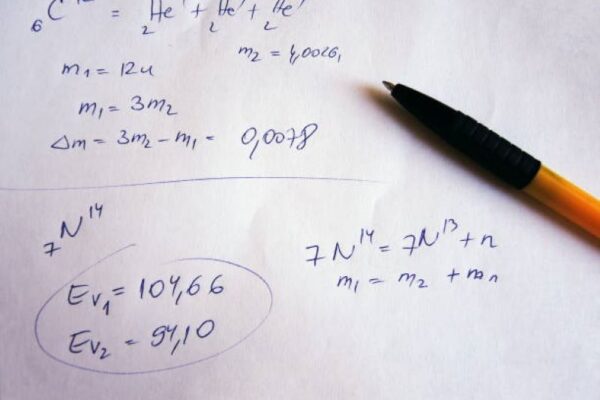 ₆C = ₂He + ₂He + ₂He
m₂ = 4,0026,
m₁ = 12u
m₁ = 3m₂
Δm = 3m₂ - m₁ = 0,0078
₇N¹⁴
₇N¹⁴ = ₇N¹³ + n
m₁ = m₂ + mₙ
Ev₁ = 104,66
Ev₂ = 94,10